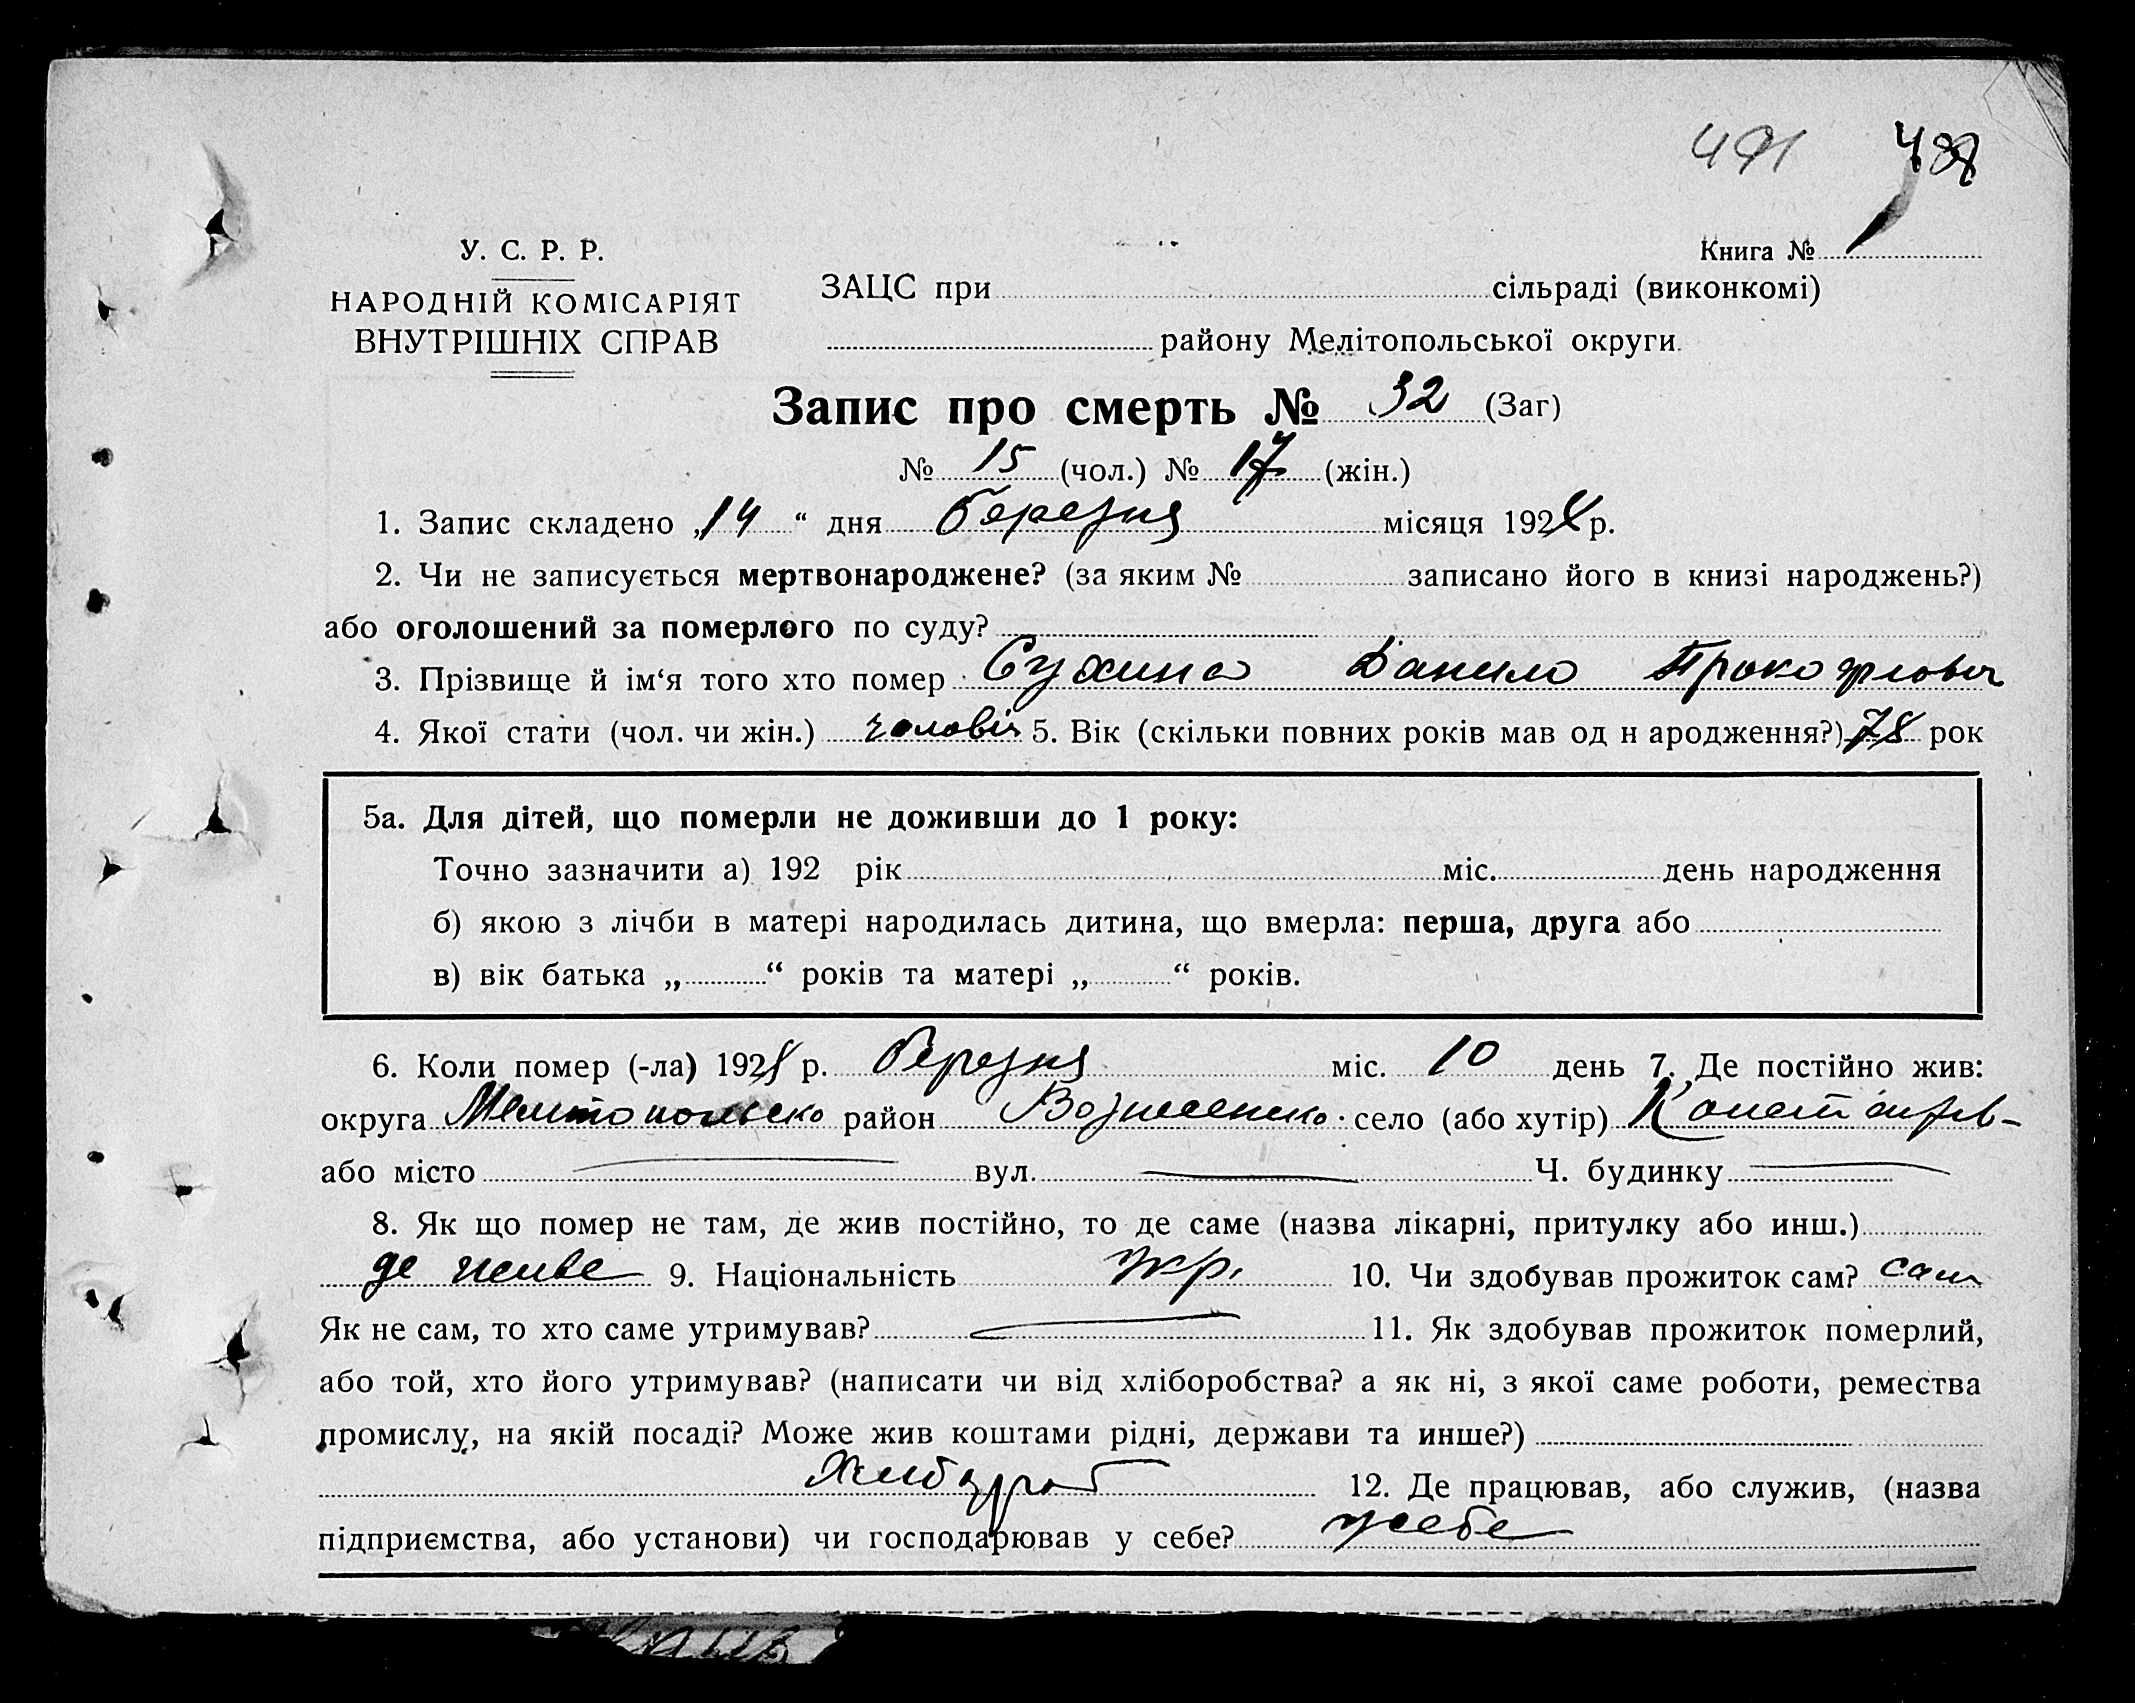 491 
Книга № 1
У. С. Р. Р.
НАРОДНІЙ КОМІСАРІЯТ
ВНУТРІШНІХ СПРАВ
ЗАЦС при сільраді (виконкомі)
району Мелітопольської округи
Запис про смерть № 32 (Заг)
№ 15 (чол.) № 17 (жін.)
1. Запис складено „14“ дня березня місяця 1928 р.
2. Чи не записується мертвонароджене? (за яким № записано його в книзі народжень?)
або оголошений за померлого по суду?
3. Прізвище й ім‘я того хто помер Сухина Данило Прокофιович
4. Якої стати (чол. чи жін.) чоловіч 5. Вік (скільки повних років мав од н ародження?) 78 рок
5а. Для дітей, що померли не доживши до 1 року:
Точно зазначити а) 192 рік міс. день народження
б) якою з лічби в матері народилась дитина, що вмерла: перша, друга або
в) вік батька „ “ років та матері „ “ років.
6. Коли помер (-ла) 1928 р. березня міс. 10 день 7. Де постійно жив:
округа Мелітопольсько район Вознесенсько село (або хутір) Констянтинів-
або місто — вул. — Ч. будинку —
8. Як що помер не там, де жив постійно, то де саме (назва лікарні, притулку або инш.)
де живе 9. Національність укр. 10. Чи здобував прожиток сам? сам
Як не сам, то хто саме утримував? — 11. Як здобував прожиток померлий,
або той, хто його утримував? (написати чи від хліборобства? а як ні, з якої саме роботи, ремества
промислу, на якій посаді? Може жив коштами рідні, держави та инше?)
Хлібороб 12. Де працював, або служив, (назва
підприємства, або установи) чи господарював у себе? у себе